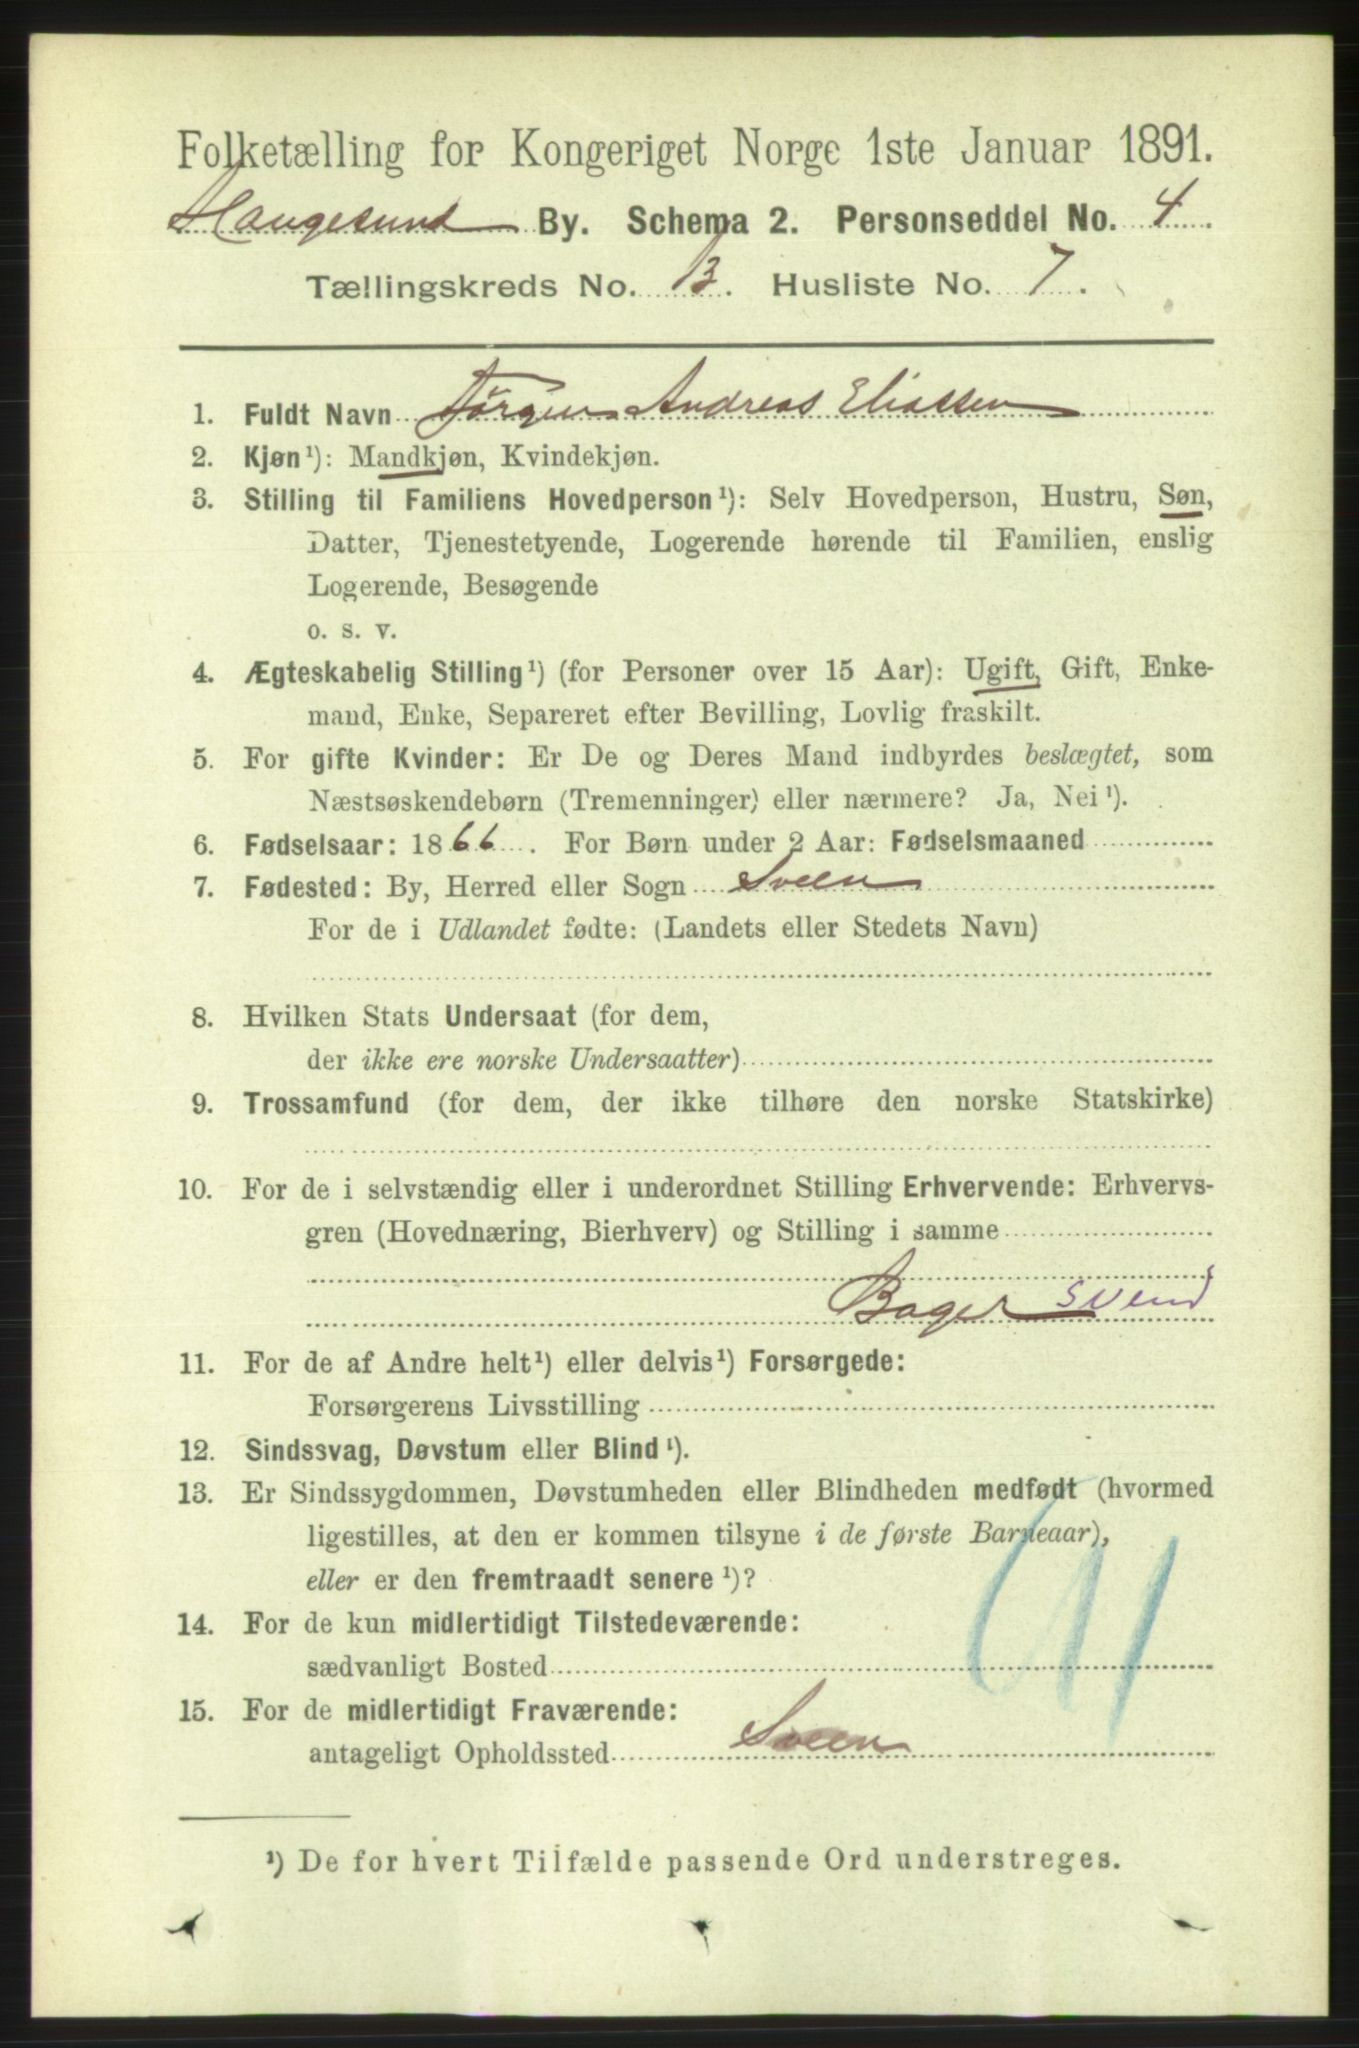 Folketælling for Kongeriget Norge 1ste Januar 1891.
Haugesund By. Schema 2. Personseddel No. 4
Tællingskreds No. 13. Husliste No. 7.
1. Fuldt Navn Jörgen Andreas Eliassen
2. Kjøn¹): Mandkjøn, Kvindekjøn.
3. Stilling til Familiens Hovedperson¹): Selv Hovedperson, Hustru, Søn,
Datter, Tjenestetyende, Logerende hørende til Familien, enslig
Logerende, Besøgende
o. s. v.
4. Ægteskabelig Stilling¹) (for Personer over 15 Aar): Ugift, Gift, Enke-
mand, Enke, Separeret efter Bevilling, Lovlig fraskilt.
5. For gifte Kvinder: Er De og Deres Mand indbyrdes beslægtet, som
Næstsøskendebørn (Tremenninger) eller nærmere? Ja, Nei¹).
6. Fødselsaar: 1866. For Børn under 2 Aar: Fødselsmaaned
7. Fødested: By, Herred eller Sogn Sveen
For de i Udlandet fødte: (Landets eller Stedets Navn)
8. Hvilken Stats Undersaat (for dem,
der ikke ere norske Undersaatter)
9. Trossamfund (for dem, der ikke tilhøre den norske Statskirke)
10. For de i selvstændig eller i underordnet Stilling Erhvervende: Erhvervs-
gren (Hovednæring, Bierhverv) og Stilling i samme
Bager svend
11. For de af Andre helt¹) eller delvis¹) Forsørgede:
Forsørgerens Livsstilling
12. Sindssvag, Døvstum eller Blind¹).
13. Er Sindssygdommen, Døvstumheden eller Blindheden medfødt (hvormed
ligestilles, at den er kommen tilsyne i de første Barneaar),
eller er den fremtraadt senere¹)?
14. For de kun midlertidigt Tilstedeværende:
sædvanligt Bosted
15. For de midlertidigt Fraværende:
antageligt Opholdssted Sveen
¹) De for hvert Tilfælde passende Ord understreges.